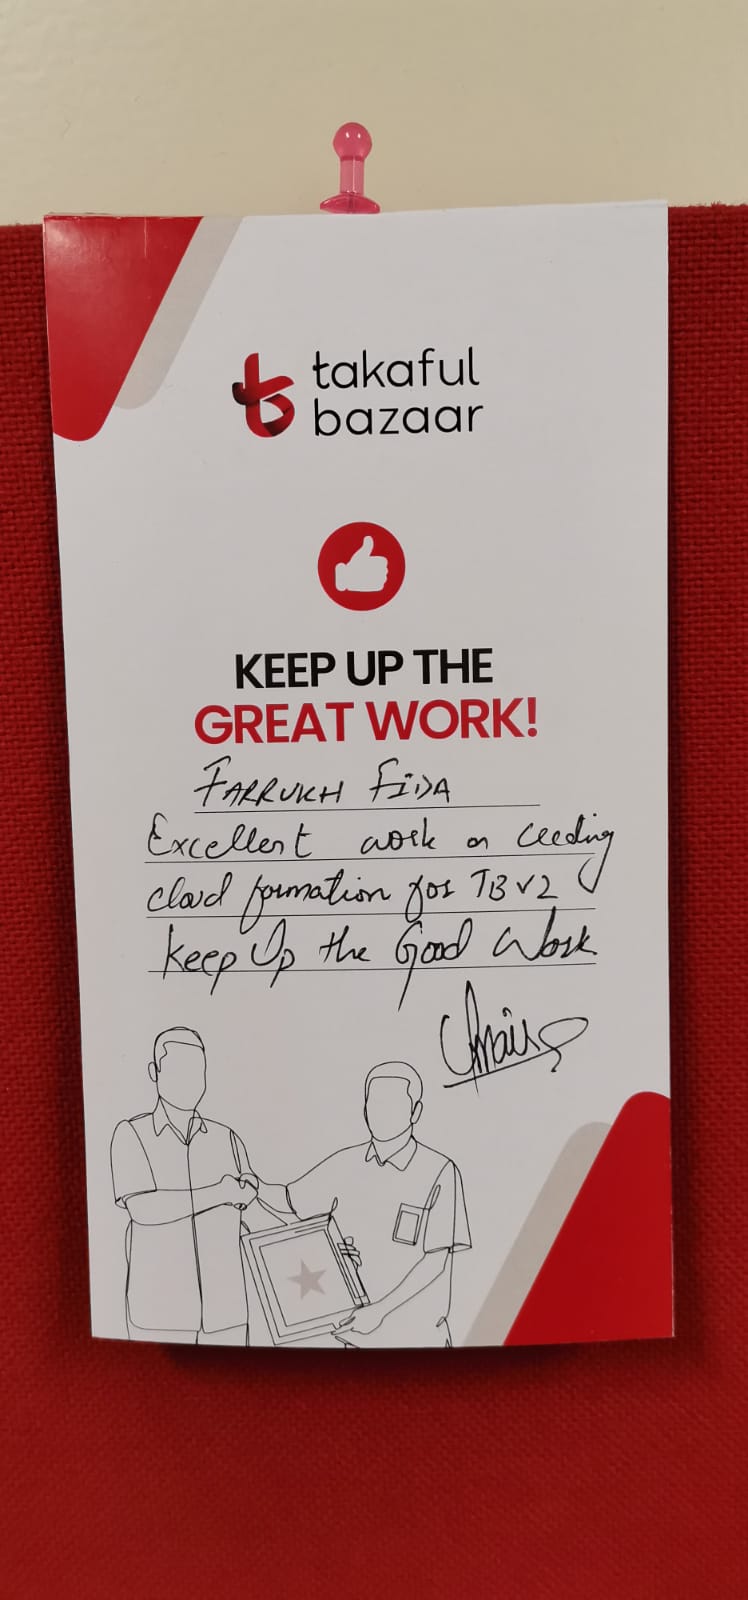 takaful
bazaar
KEEP UP THE
GREAT WORK!
FARRUKH FIDA
Excellent work on leeding
cloud formation for TB v2
Keep Up the Good Work